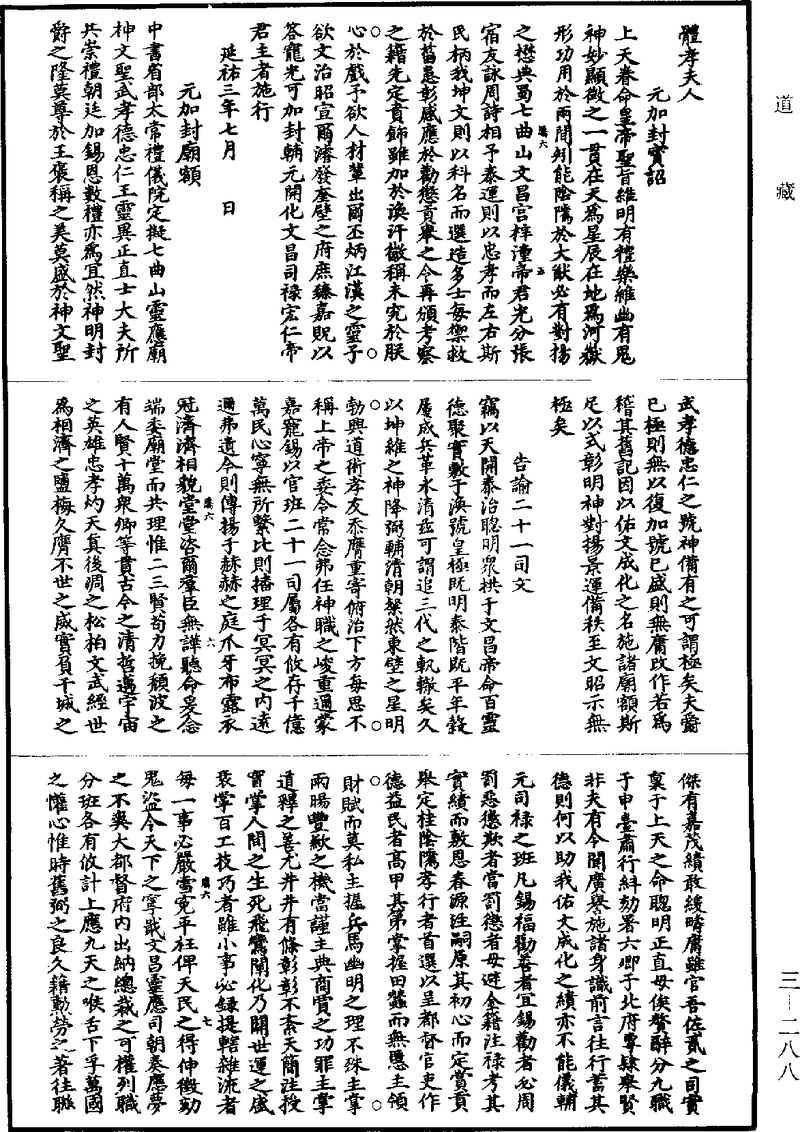 道藏
體孝夫人
元加封寶詔
上天眷命皇帝聖旨維明有禮樂維幽有鬼
神妙顯微之一貫在天爲星辰在地爲河嶽
形功用於兩間矧能陰騭於大猷必有對揚
之懋典蜀七曲山文昌宮梓潼帝君光分張
宿友詠周詩相予泰運則以忠孝而左右斯
民柄我坤文則以科名而選造多士每禦救
於菑患彰感應於勸懲貢舉之令再頒考察
之籍先定賁飾雖加於渙汗徽稱未究於朕
心於戲予欲人材輩出爾丕炳江漢之靈予
欲文治昭宣爾濬發奎壁之府庶臻嘉貺以
答寵光可加封輔元開化文昌司祿宏仁帝
君主者施行
延祐三年七月 日
元加封廟額
中書省部太常禮儀院定擬七曲山靈應廟
神文聖武孝德忠仁王靈異正直士大夫所
共崇禮朝廷加錫恩數禮亦爲宜然神明封
爵之隆莫尊於王褒稱之美莫盛於神文聖
武孝德忠仁之號神備有之可謂極矣夫爵
已極則無以復加號已盛則無庸改作若爲
稽其舊記因以佑文成化之名施諸廟額斯
足以式彰明神對揚景運備秩至文昭示無
極矣
告諭二十一司文
竊以天開泰治聰明眾栱于文昌帝命百靈
德聚實敷于渙號皇極既明泰階既平年穀
屢成兵革永清茲可謂追三代之軌轍矣久
以坤維之神降弼輔清朝粲然東壁之星明
勃興道術孝友忝膺重寄俯治下方每思不
稱上帝之委令常念弗任神職之峻重遹蒙
嘉寵錫以官班二十一司屬各有攸存千億
萬民心寧無所繫比則播理于冥冥之內遠
邇弗遺今則傳揚于赫赫之庭爪牙布露承
冠濟濟相貌堂堂咨爾羣臣無譁聽命爰念
端委廟堂而共理惟二三賢苟力挽頹波之
有人賢十萬衆卿等貫古今之清哲邁宇宙
之英雄忠孝灼天真後凋之松柏文武經世
爲相濟之鹽梅久膺不世之威實負干城之
傑有嘉茂績敢緩疇庸雖官吾佐貳之司實
稟于上天之命聰明正直毋俟贅辭分九職
于中臺肅行糾劾署六卿于北府專隸舉賢
非夫有令聞廣譽施諸身識前言往行蓄其
德則何以助我佑文成化之績亦不能儀輔
元司祿之班凡錫福勸善者宜錫勸者必周
罰惡德欺者當罰德者毋避金籍注祿考其
實績而敷恩春源注嗣原其初心而定賞貢
舉定桂陰隲孝行者首選以呈都督官吏作
德益民者高甲其第掌握田蠶而無慝主領
財賦而莫私主握兵馬幽明之理不殊主掌
雨暘豐歉之機當謹主典商賈之功罪主掌
道釋之善尤井井有條彰彰不紊天簡注授
實掌人間之生死飛鸞闡化乃關世運之盛
衰掌百工技巧者雖小事必錄提轄雜流者
每一事必嚴雪冤平枉俾天民之得伸徵劾
鬼盜今天下之寧戢文昌靈應司朝奏應夢
之不爽大都督府內出納總裁之可權列職
分班各有攸計上應九天之喉舌下孚萬國
之懽心惟時舊弼之良久籍勳勞之著往聯
隲六 五
隲六 六
隲六 七
三—二八八